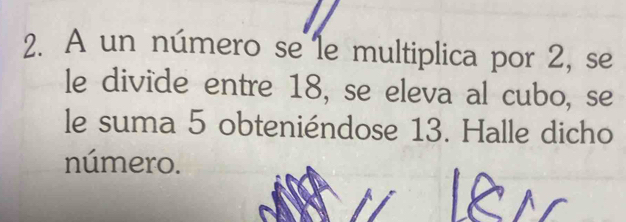 2. A un número se le multiplica por 2, se
le divide entre 18, se eleva al cubo, se
le suma 5 obteniéndose 13. Halle dicho
número.